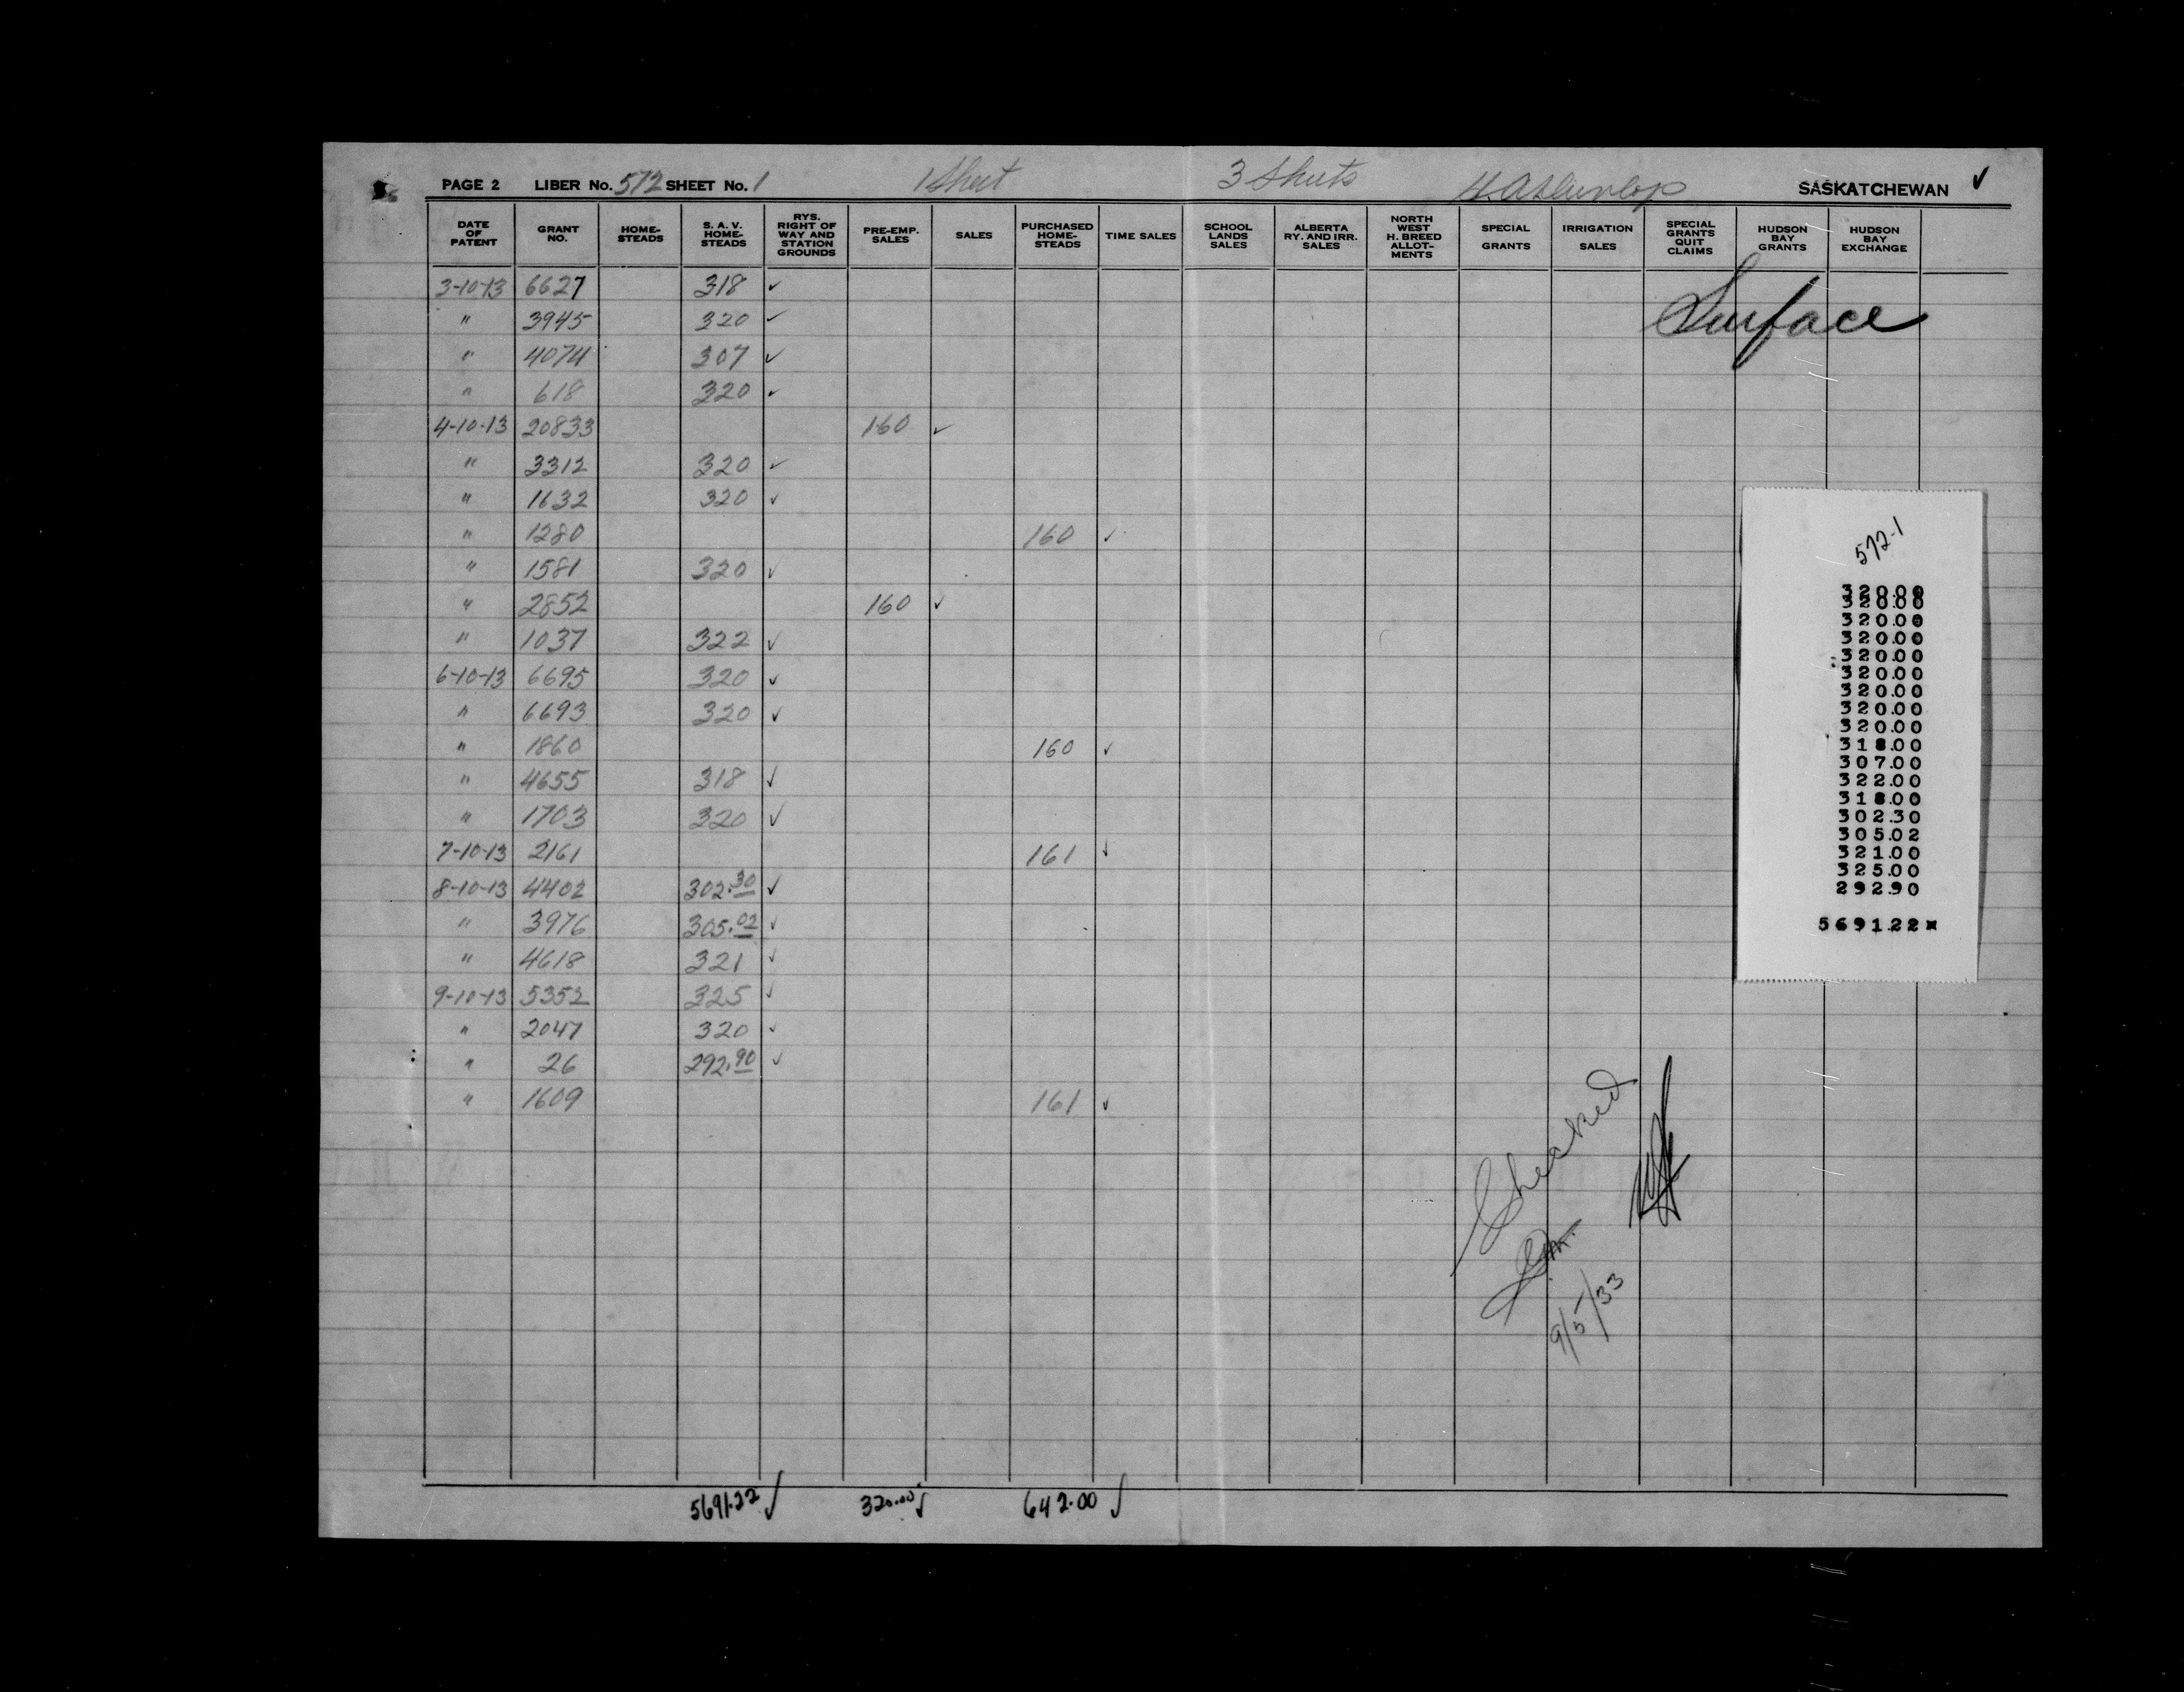 1 Sheet 3 Sheets H. A. Dunlop
PAGE 2 LIBER No. 572 SHEET No. 1 SASKATCHEWAN ✓
DATE OF PATENT GRANT NO. HOME-STEADS S. A. V. HOME-STEADS RYS. RIGHT OF WAY AND STATION GROUNDS PRE-EMP. SALES SALES PURCHASED HOME-STEADS TIME SALES SCHOOL LANDS SALES ALBERTA RY. AND IRR. SALES NORTH WEST H. BREED ALLOT-MENTS SPECIAL GRANTS IRRIGATION SALES SPECIAL GRANTS QUIT CLAIMS HUDSON BAY GRANTS HUDSON BAY EXCHANGE
3-10-13 6627 318 ✓
" 3945 320 ✓
" 4074 307 ✓
" 618 320 ✓
4-10-13 20833 160 ✓
" 3312 320 ✓
" 1632 320 ✓
" 1280 160 ✓
" 1581 320 ✓
" 2852 160 ✓
" 1037 322 ✓
6-10-13 6695 320 ✓
" 6693 320 ✓
" 1860 160 ✓
" 4655 318 ✓
" 1703 320 ✓
7-10-13 2161 161 ✓
8-10-13 4402 302.30 ✓
" 3976 305.02 ✓
" 4618 321 ✓
9-10-13 5352 325 ✓
" 2047 320 ✓
" 26 292.90 ✓
" 1609 161 ✓
5691.22 ✓ 320.00 ✓ 642.00 ✓
Surface
572-1
320.00
320.00
320.00
320.00
320.00
320.00
320.00
320.00
320.00
318.00
307.00
322.00
318.00
302.30
305.02
321.00
325.00
292.90
5691.22*
Checked
9/5/33